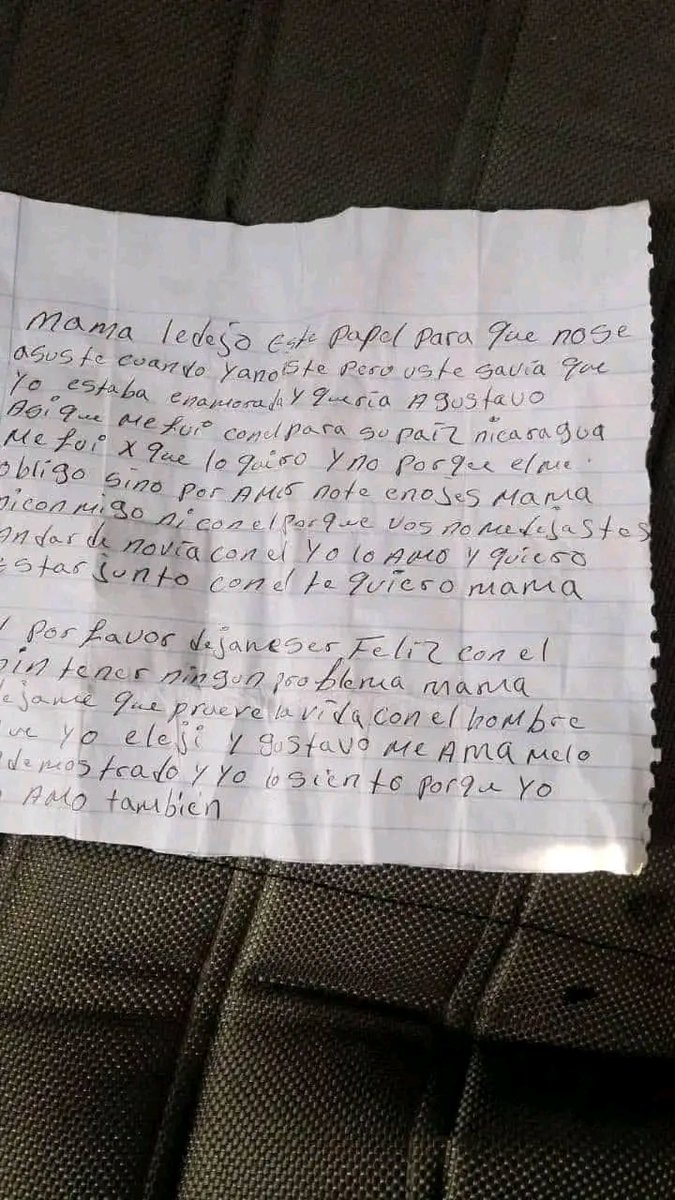 mama ledejo este papel para que nose
asuste cuando yanoiste pero uste savia que
yo estaba enamorada y queria A gustavo
Asi que me fui conel para su paiz nicaragua
Me fui x que lo quiro y no porque el me
obligo sino por AMor note enojes mama
niconmigo ni con el porque vos nomedejastes
andar de novia con el Yo lo AMo y quiero
estar junto con el te quiero mama
por favor dejameser Feliz con el
sin tener ningun problema mama
dejame que prueve la vida con el hombre
que yo eleji y gustavo Me AMA Melo
demostrado y yo lo siento porque yo
AMO también